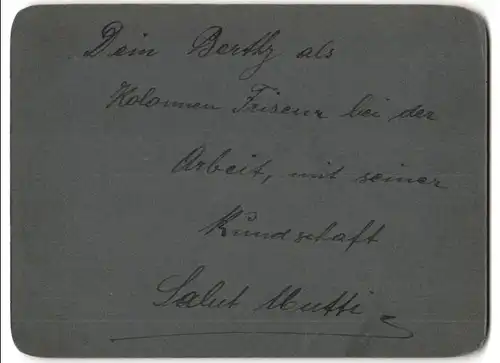 Dein Berthy als
Kolonnen Friseur bei der
Arbeit, mit seiner
Kundschaft
Salut Mutti